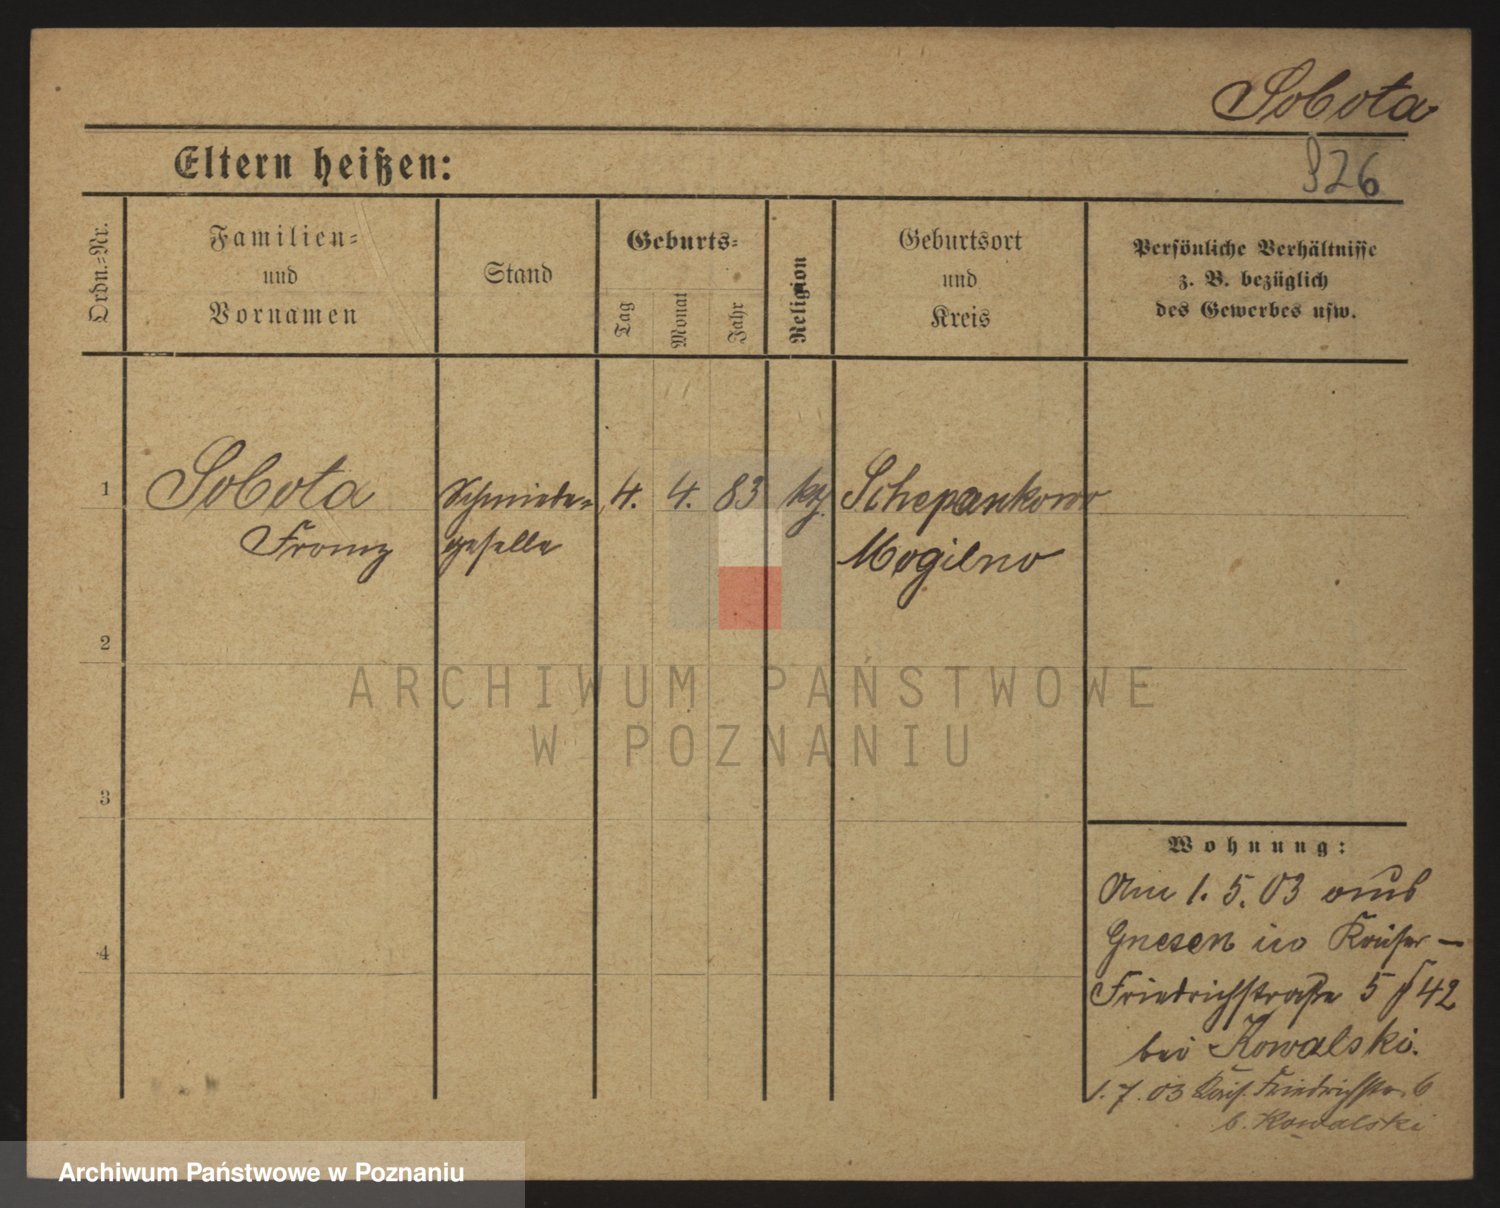 Sobota
Eltern heißen:
326
Ordn.-Nr.
Familien-
und
Vornamen
Stand
Geburts-
Tag
Monat
Jahr
Religion
Geburtsort
und
Kreis
Persönliche Verhältnisse
z. B. bezüglich
des Gewerbes usw.
1
Sobota
Franz
Schmiede-
geselle
4.
4.
83
kth.
Schepankowo
Mogilno
2
ARCHIWUM PAŃSTWOWE
W POZNANIU
3
Wohnung:
Am 1. 5. 03 aus
Gnesen in Kaiser-
Friedrichstraße 5 42
bei Kowalski.
1. 7. 03 Kais. Friedrichstr. 6
b. Kowalski
4
Archiwum Państwowe w Poznaniu